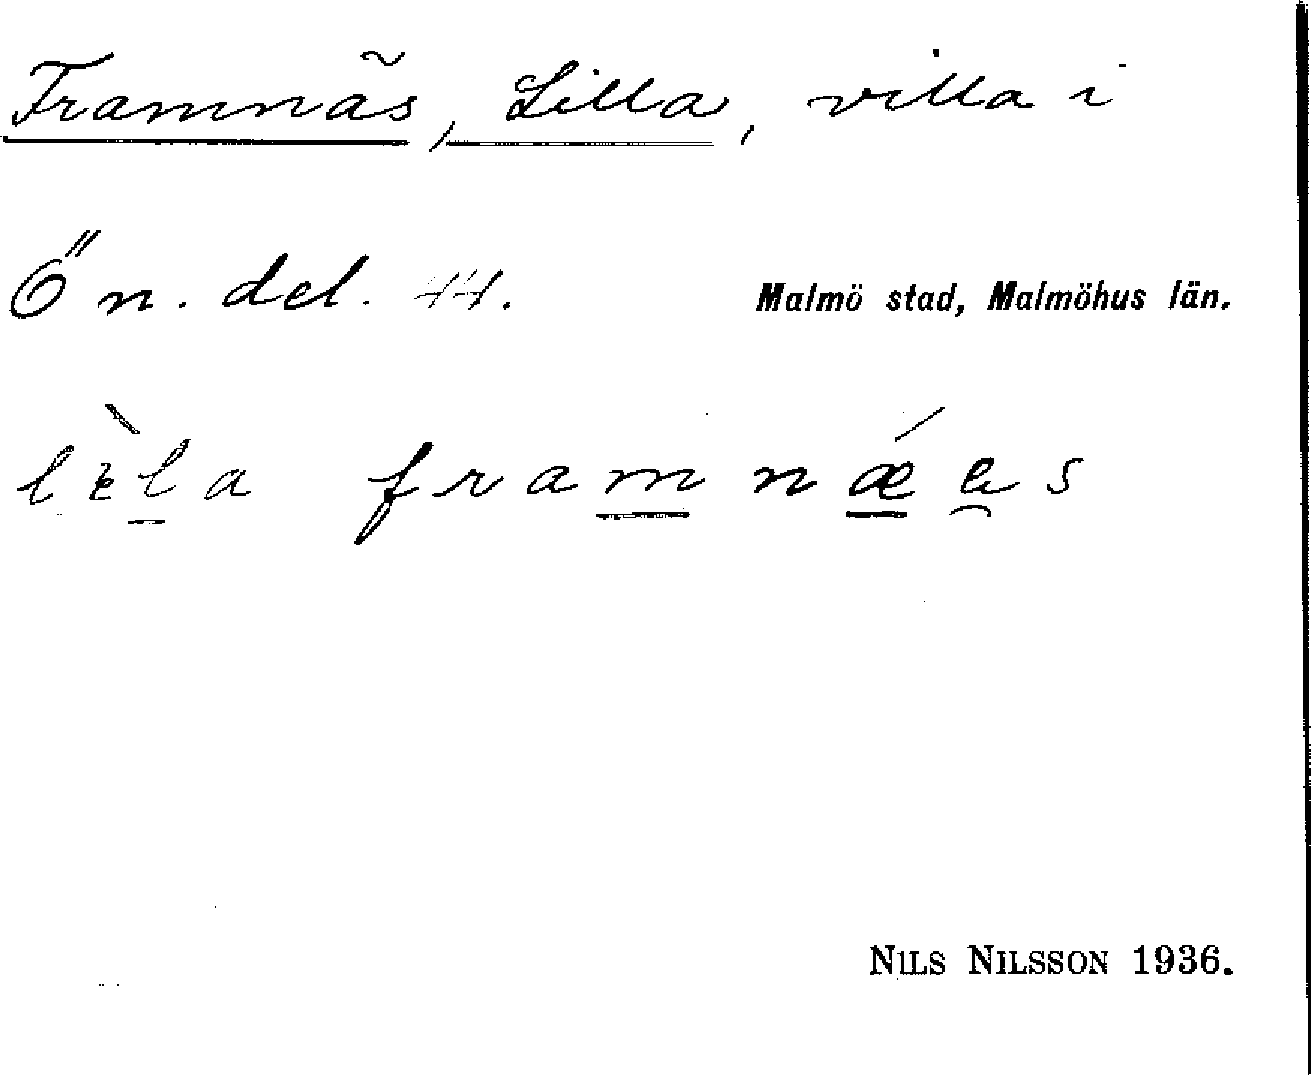 Framnäs, Lilla, villa i
Ön. del. 44. Malmö stad, Malmöhus län.
lèla framnǽes
NILS NILSSON 1936.